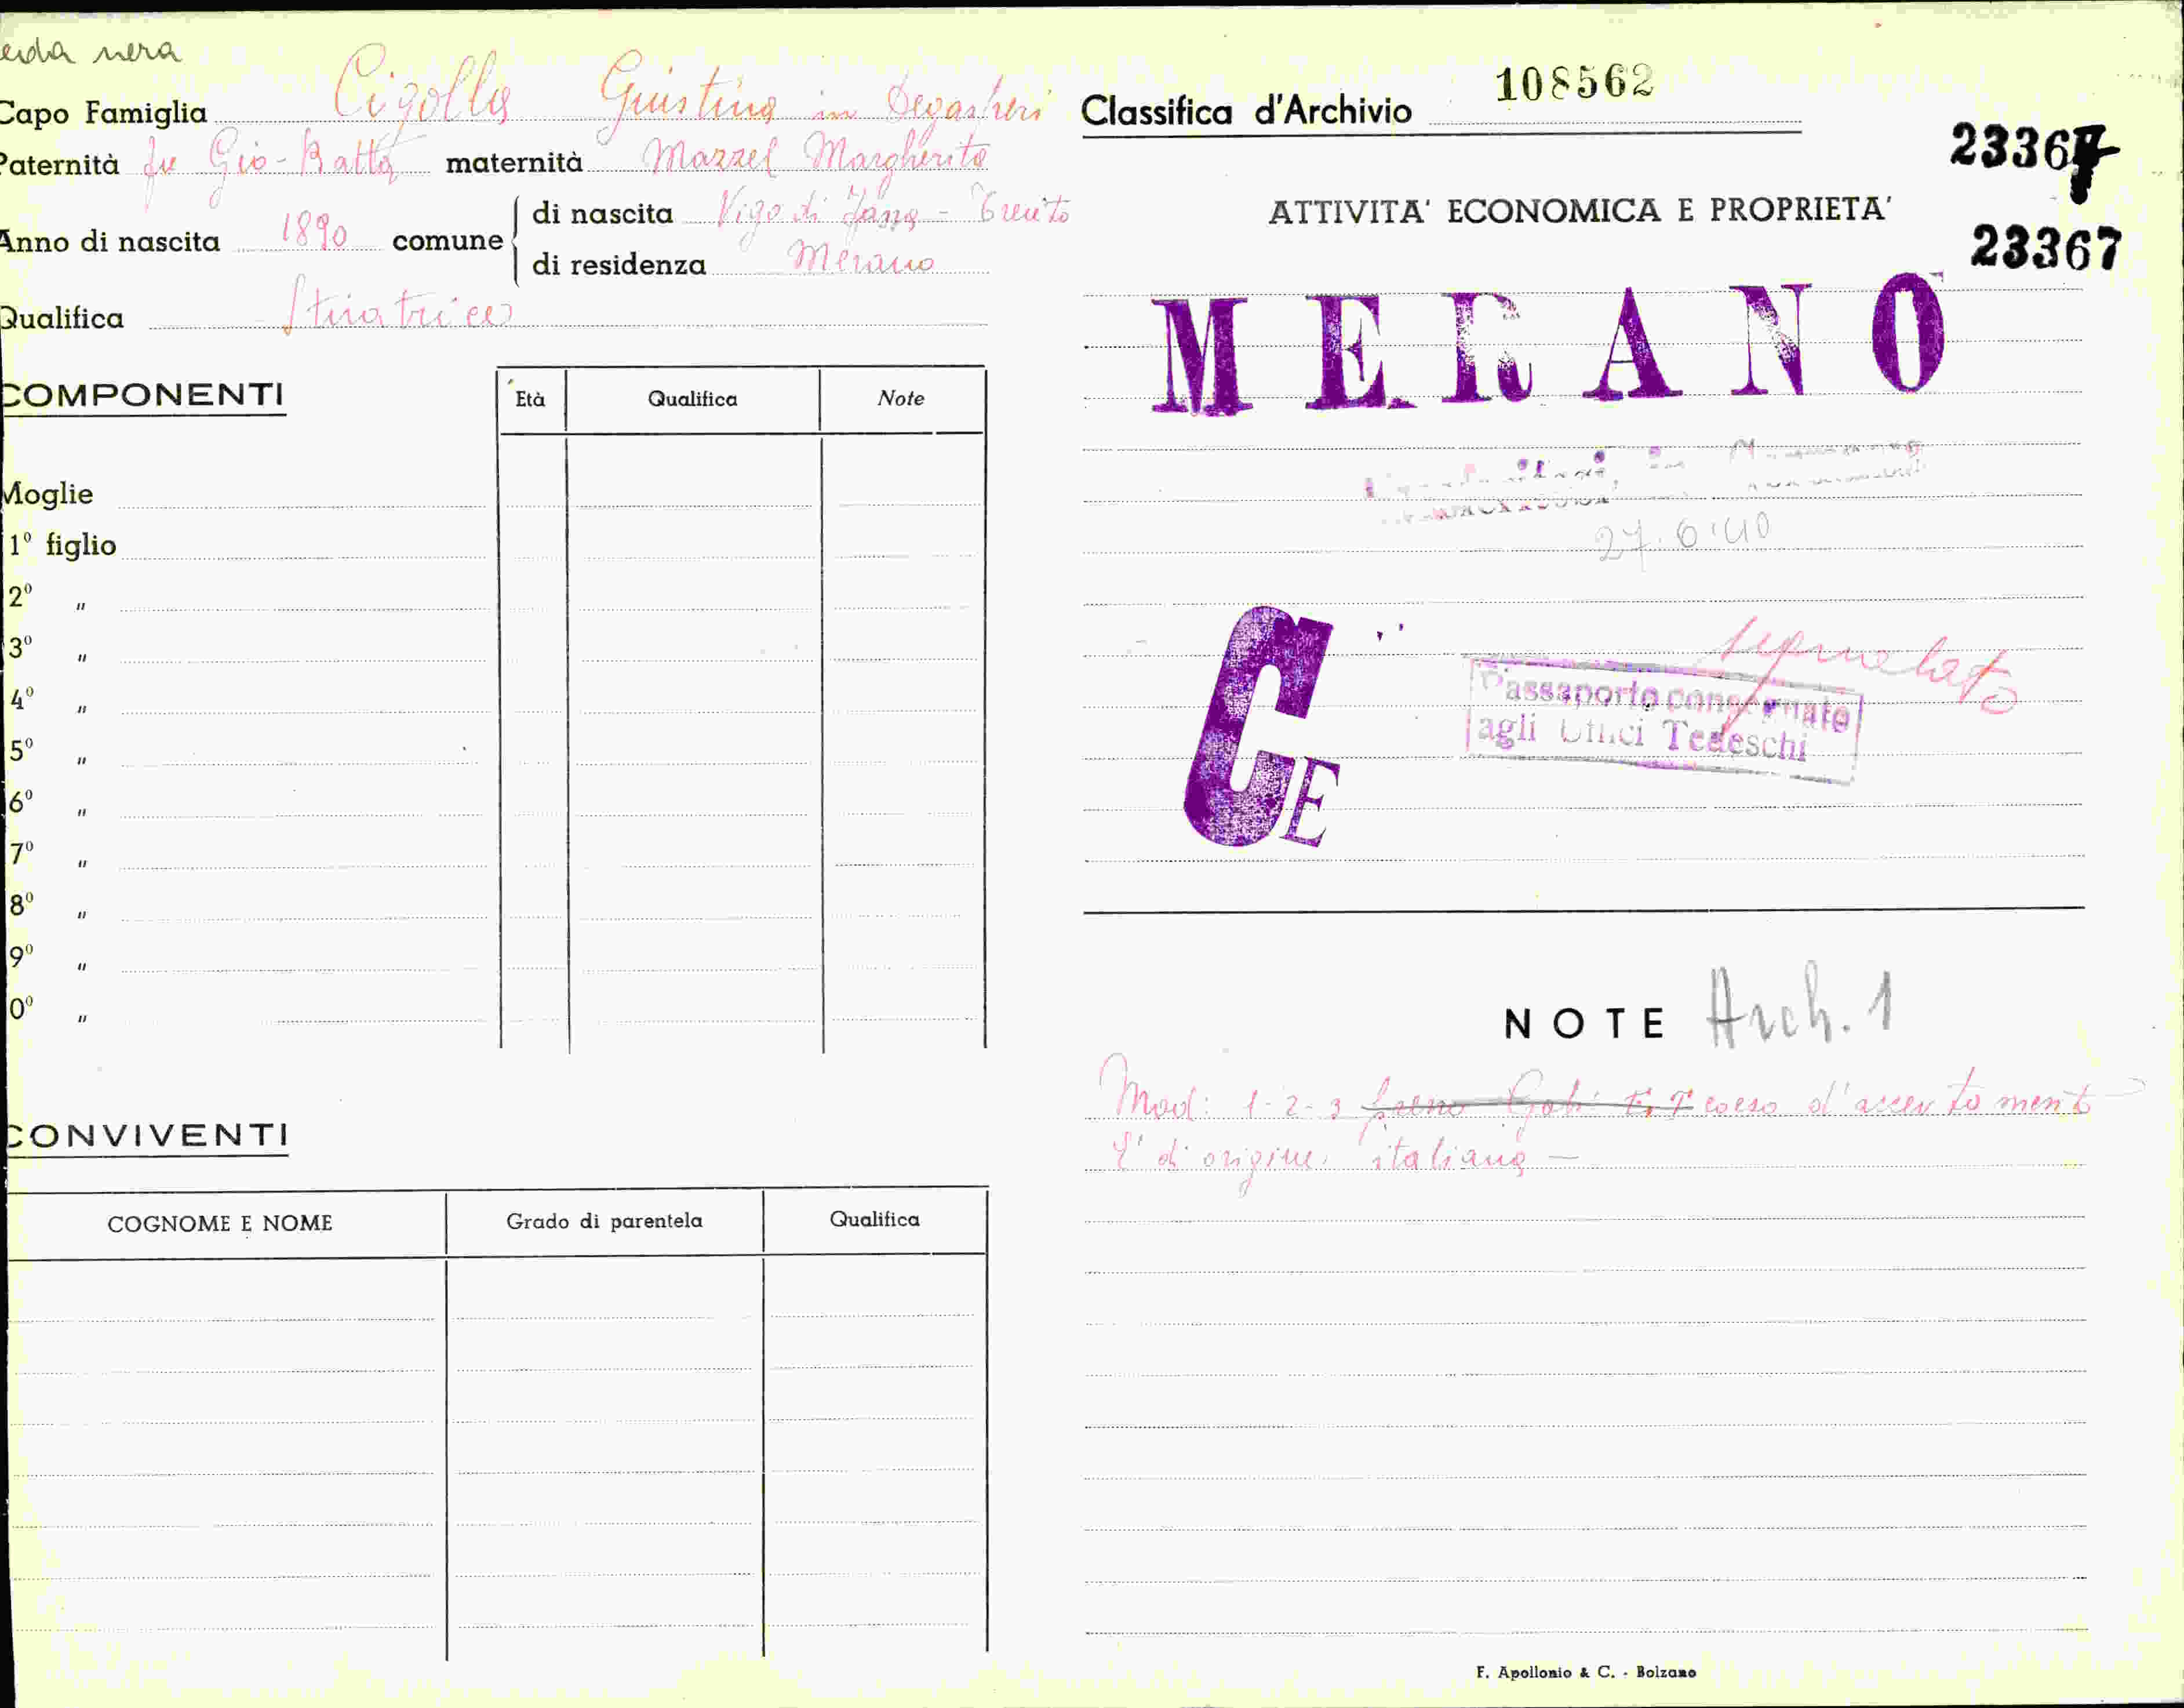 nera
Capo Famiglia Cigolla Giustina in Degasperi
Paternità fu Gio-Batta maternità Mazzel Margherita
Anno di nascita 1890 comune
di nascita Vigo di Fassa - Trento
di residenza Merano
Qualifica Stiratrice
COMPONENTI
Età Qualifica Note
Moglie
1º figlio
2º "
3º "
4º "
5º "
6º "
7º "
8º "
9º "
0º "
CONVIVENTI
COGNOME E NOME Grado di parentela Qualifica
Classifica d'Archivio 108562
23367
ATTIVITA' ECONOMICA E PROPRIETA'
23367
MERANO
27.6.40
segnalato
Passaporto consegnato
agli Uffici Tedeschi
CE
NOTE Arch. 1
Mod: 1-2-3 corso d'accertamento
E' di origine italiana —
F. Apollonio & C. - Bolzano